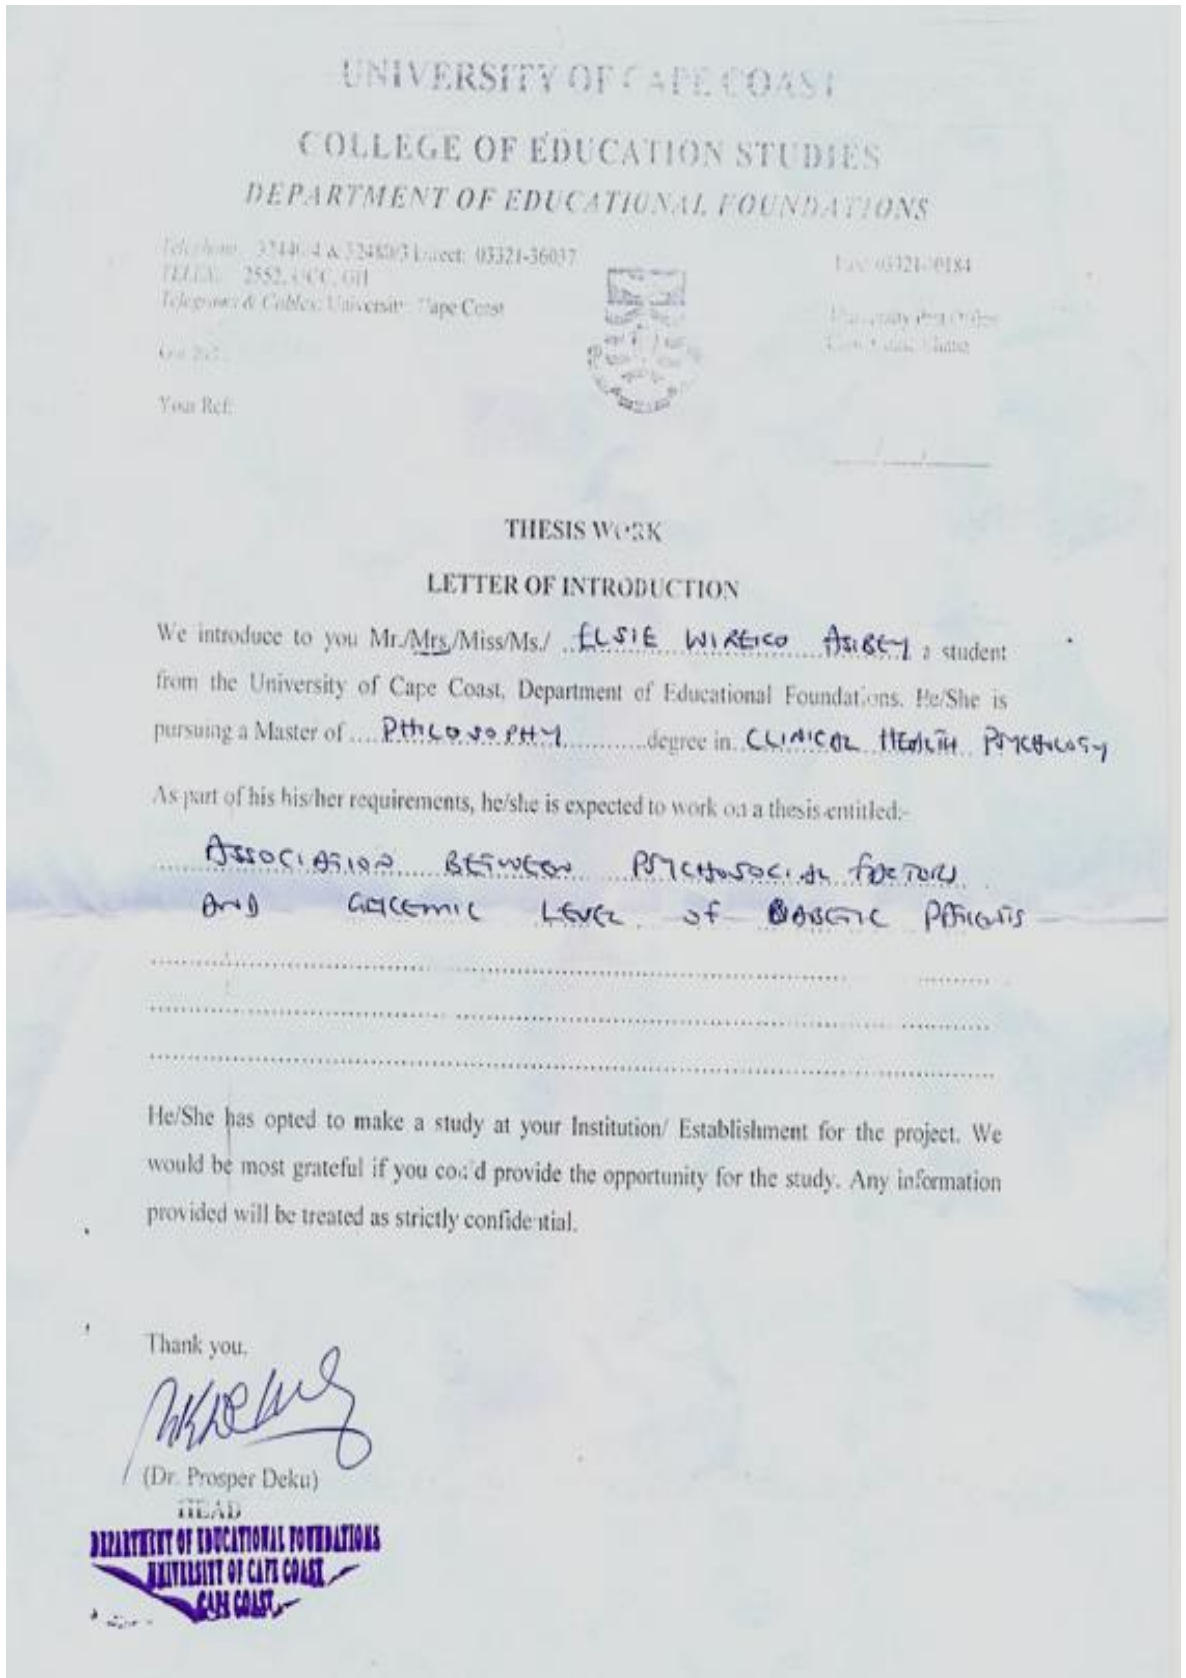 UNIVERSITY OF CAPE COAST
COLLEGE OF EDUCATION STUDIES
DEPARTMENT OF EDUCATIONAL FOUNDATIONS
Telephone: & 32480/3 Direct: 03321-36037
TELEX: 2552, UCC, GH
Telegrams & Cables: University Cape Coast
Fax: 03321-30184
University Post Office
Cape Coast, Ghana
Our Ref:
Your Ref:
THESIS WORK
LETTER OF INTRODUCTION
We introduce to you Mr./Mrs./Miss/Ms./ ELSIE WIREKO ASIBEY a student
from the University of Cape Coast, Department of Educational Foundations. He/She is
pursuing a Master of .... PHILOSOPHY ............ degree in CLINICAL HEALTH PSYCHOLOGY
As part of his his/her requirements, he/she is expected to work on a thesis entitled:-
ASSOCIATION BETWEEN PSYCHOSOCIAL FACTORS
AND LEVEL OF PATIENTS
He/She has opted to make a study at your Institution/ Establishment for the project. We
would be most grateful if you could provide the opportunity for the study. Any information
provided will be treated as strictly confidential.
Thank you.
(Dr. Prosper Deku)
HEAD
DEPARTMENT OF EDUCATIONAL FOUNDATIONS
UNIVERSITY OF CAPE COAST
CAPE COAST